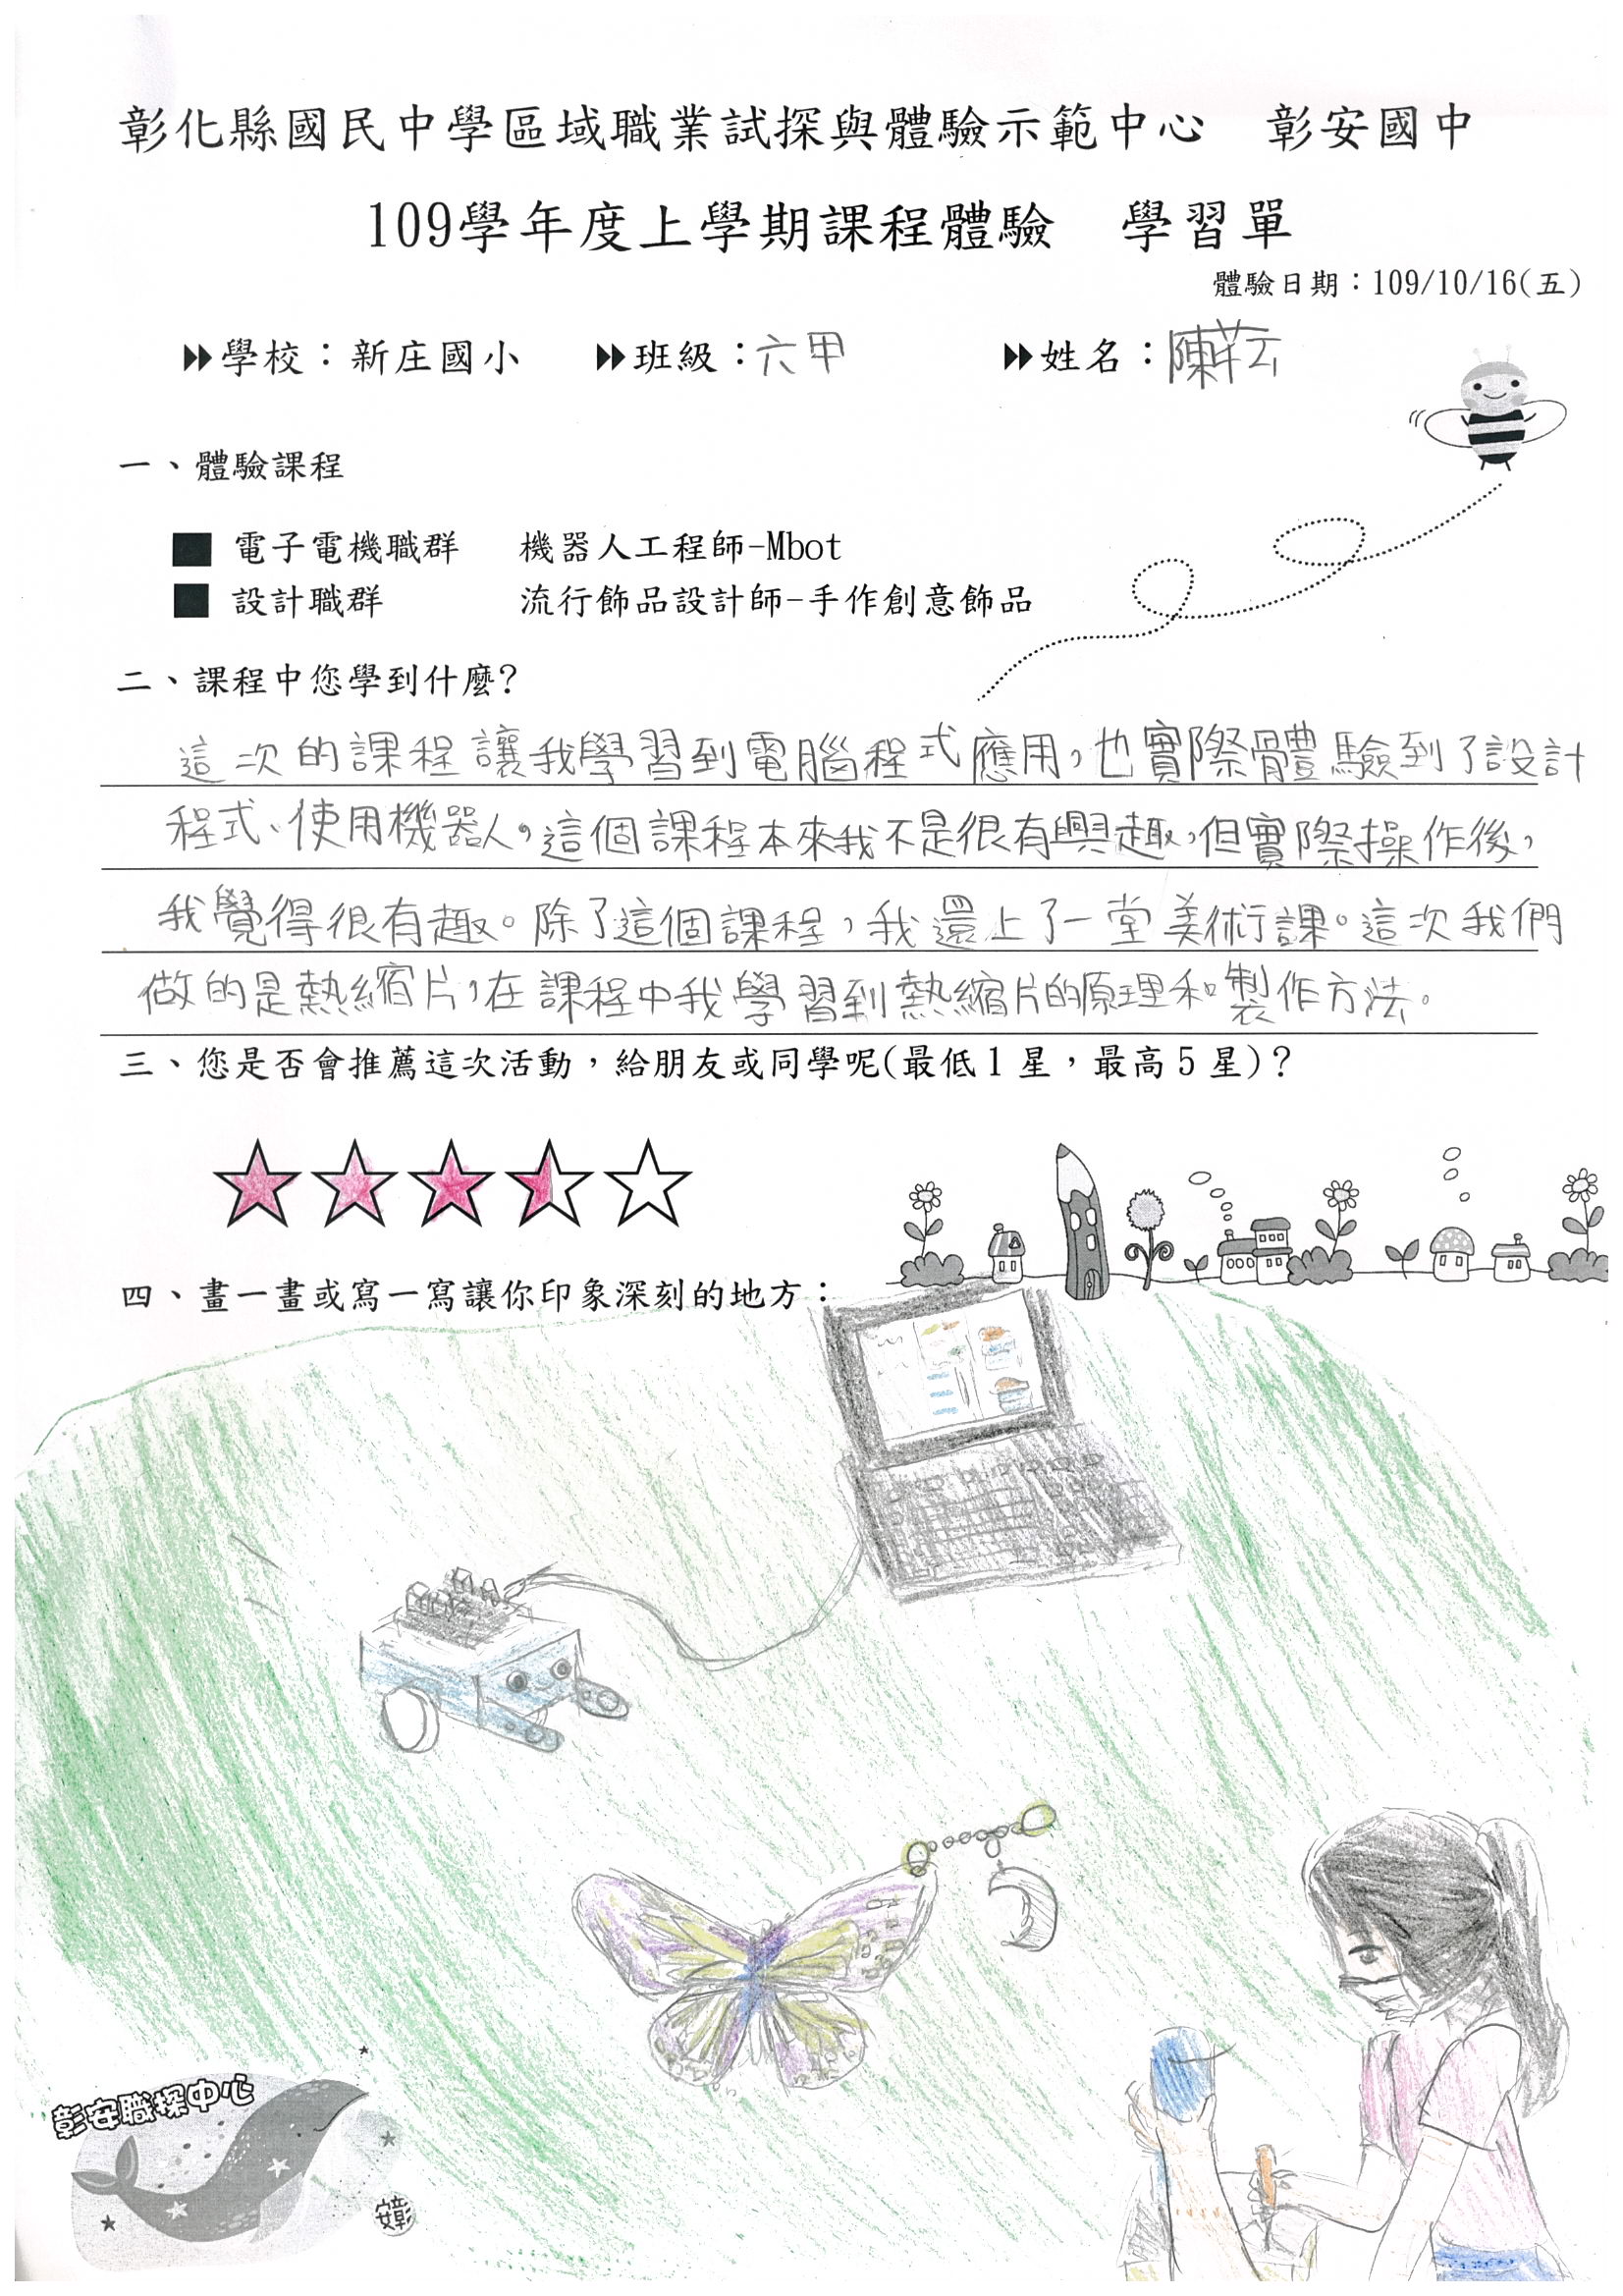 彰化縣國民中學區域職業試探與體驗示範中心　彰安國中
109學年度上學期課程體驗　學習單
體驗日期：109/10/16(五)
學校：新庄國小　班級：六甲　姓名：陳芊云
一、體驗課程
■ 電子電機職群　機器人工程師-Mbot
■ 設計職群　流行飾品設計師-手作創意飾品
二、課程中您學到什麼?
這次的課程讓我學習到電腦程式應用，也實際體驗到了設計
程式、使用機器人，這個課程本來我不是很有興趣，但實際操作後，
我覺得很有趣。除了這個課程，我還上了一堂美術課。這次我們
做的是熱縮片，在課程中我學習到熱縮片的原理和製作方法。
三、您是否會推薦這次活動，給朋友或同學呢(最低1星，最高5星)?
四、畫一畫或寫一寫讓你印象深刻的地方：
彰安職探中心